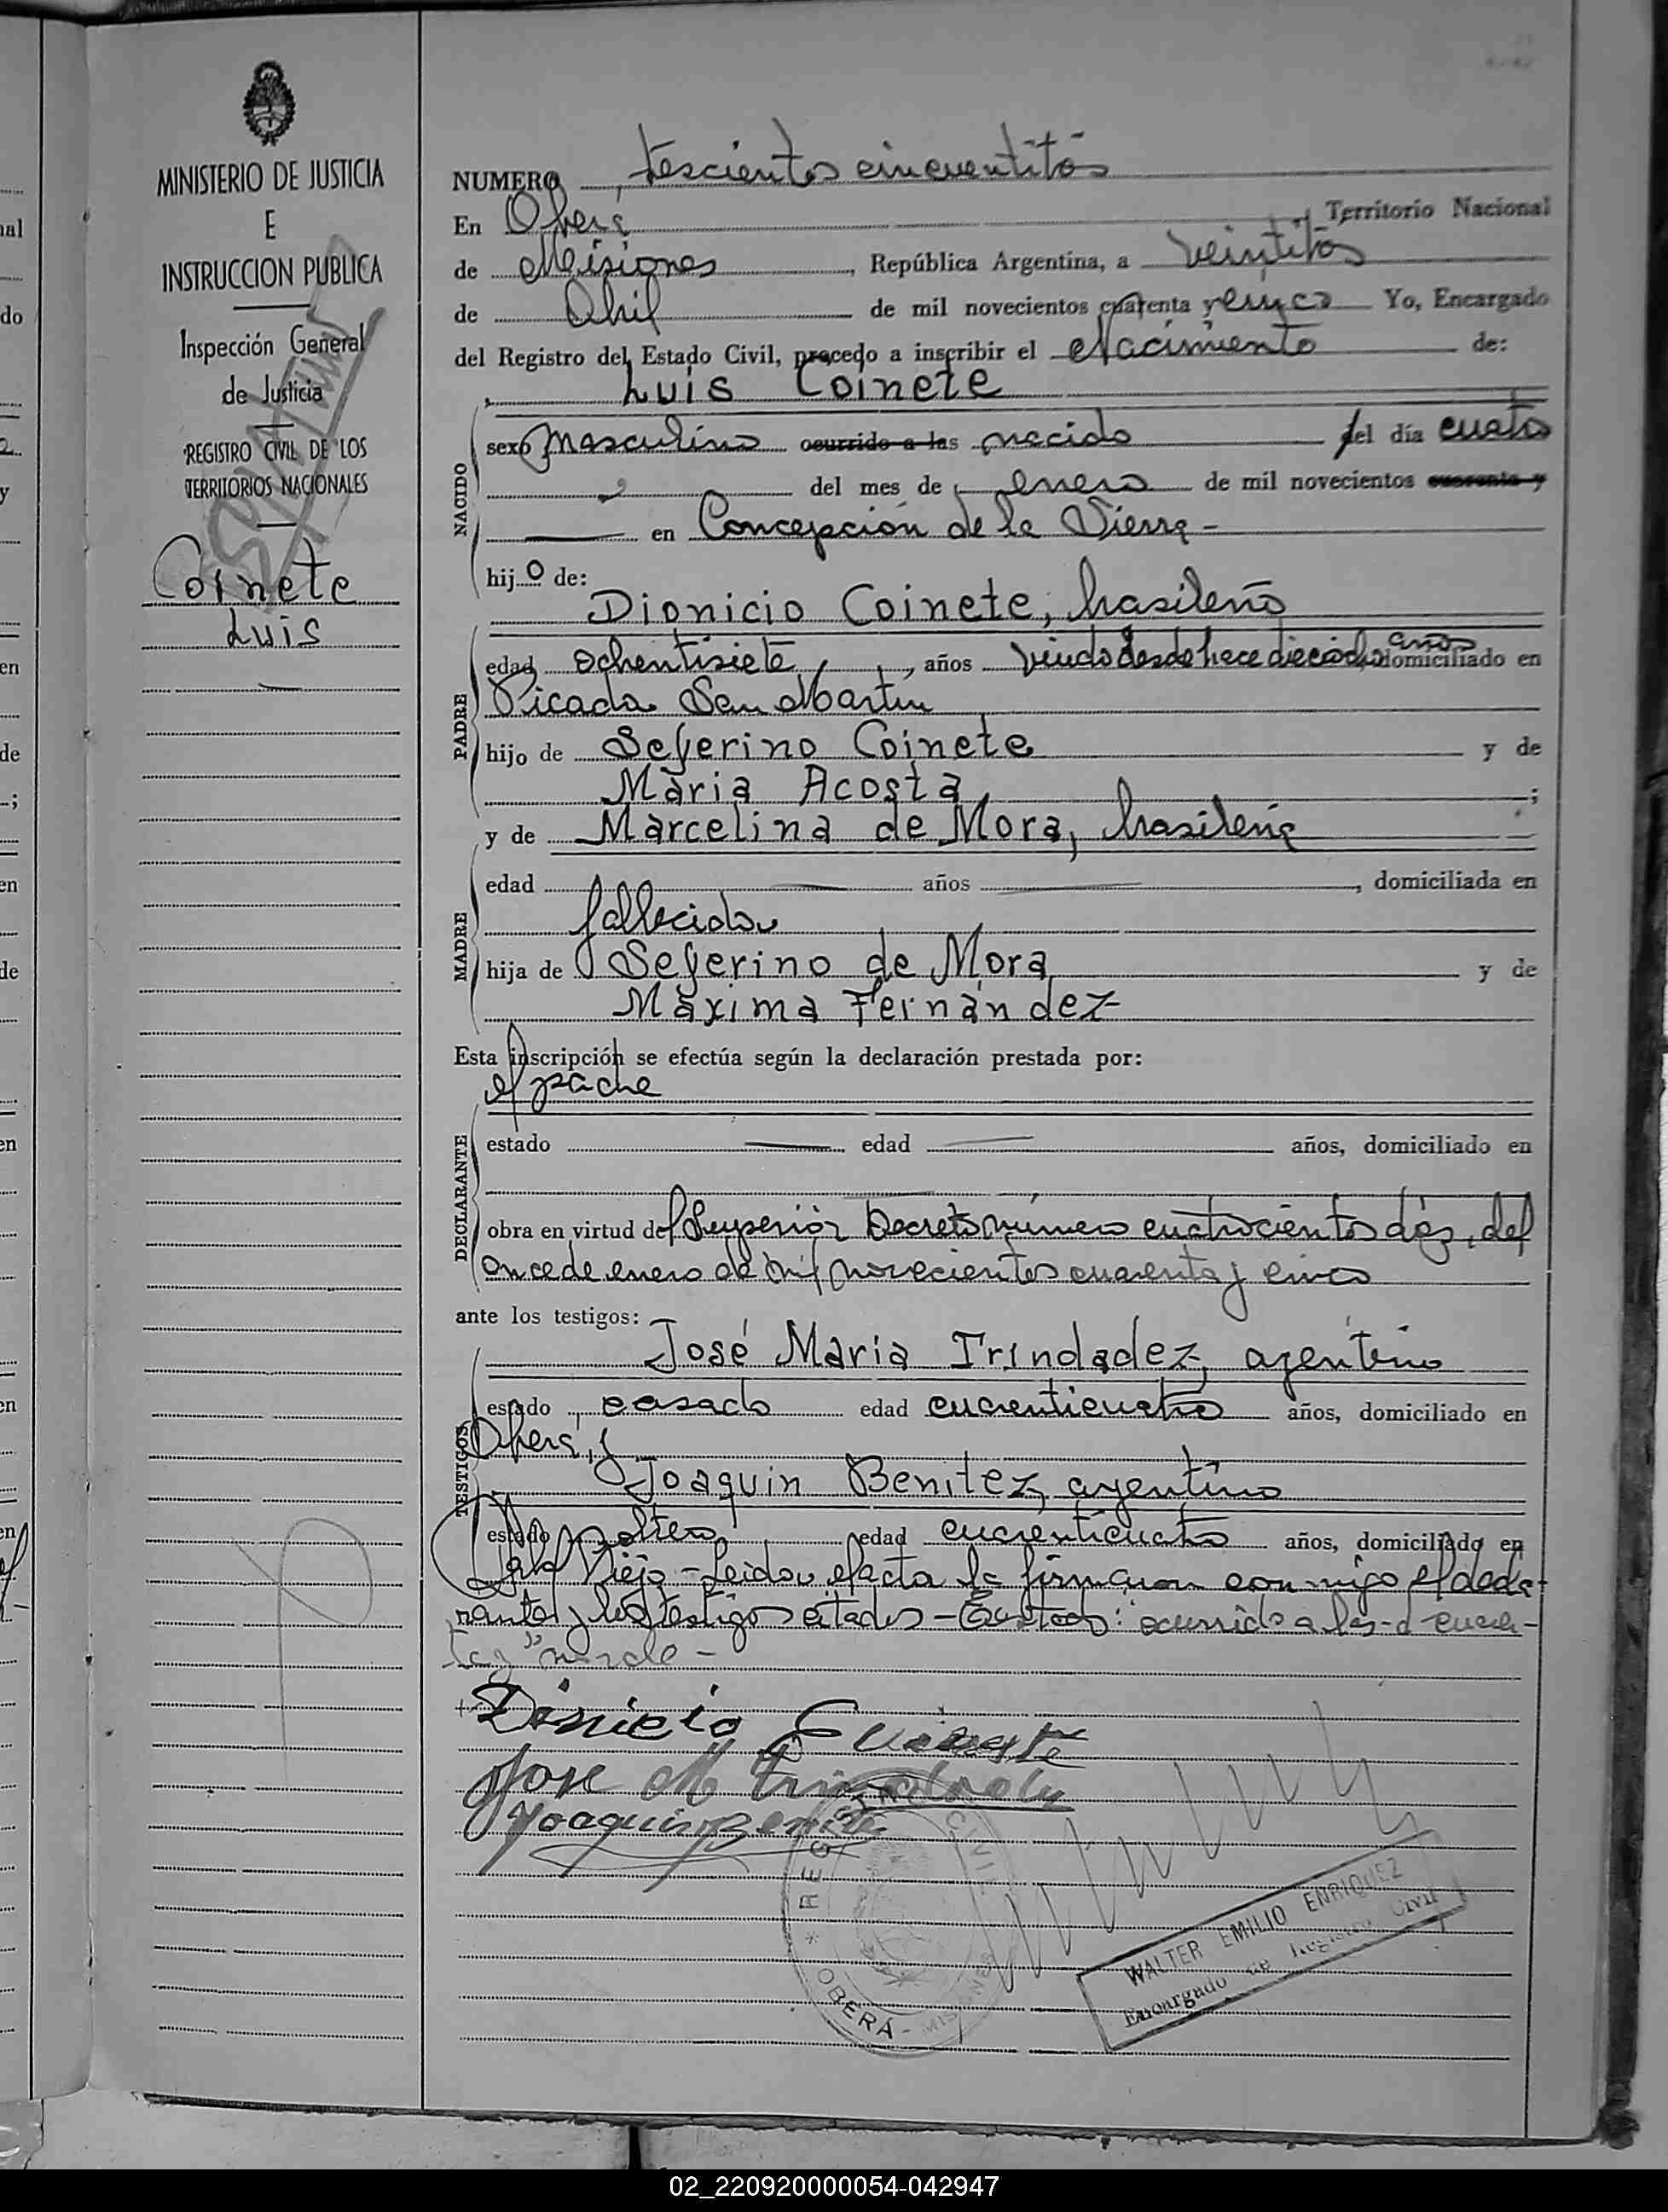 MINISTERIO DE JUSTICIA
E
INSTRUCCION PUBLICA
Inspección General
de Justicia
REGISTRO CIVIL DE LOS
TERRITORIOS NACIONALES
Coinete
Luis
NUMERO tescientos cincuentitós
En Oberá, Territorio Nacional
de Misiones, República Argentina, a veintitós
de Abril de mil novecientos cuarenta y cinco Yo, Encargado
del Registro del Estado Civil, procedo a inscribir el Nacimiento de:
Luis Coinete
NACIDO
sexo masculino ocurrido a las nacido del día cuato
del mes de enero de mil novecientos cuarenta y
en Concepción de la Sierra -
hijo de:
Dionicio Coinete, brasileño
PADRE
edad ochentisiete, años viudo desde hace dieciocho años domiciliado en
Picada San Martín
hijo de Seferino Coinete y de
Maria Acosta ;
y de Marcelina de Mora, brasileña
MADRE
edad años , domiciliada en
fallecida
hija de Seferino de Mora y de
Máxima Fernández
Esta inscripción se efectúa según la declaración prestada por:
el padre
DECLARANTE
estado edad años, domiciliado en
obra en virtud del Superior Decreto número cuatrocientos dós, del
once de enero de mil novecientos cuarenta y cinco
ante los testigos:
José Maria Trindadez, argentino
TESTIGOS
estado casado edad cuarenticuatro años, domiciliado en
Oberá, y
Joaquin Benitez, argentino
estado soltero edad cuarenticuatro años, domiciliado en
Viejo - Leida el acta la firmaron con migo el decla-
rante y los testigos citados - ocurrido a las - d cuaren-
ta y" no vale -
Dinicio
Jose M Trindade
Joaquin Benitez
REGISTRO CIVIL
* OBERÁ - MISIONES
WALTER EMILIO ENRIQUEZ
Encargado de Registro Civil
02_220920000054-042947